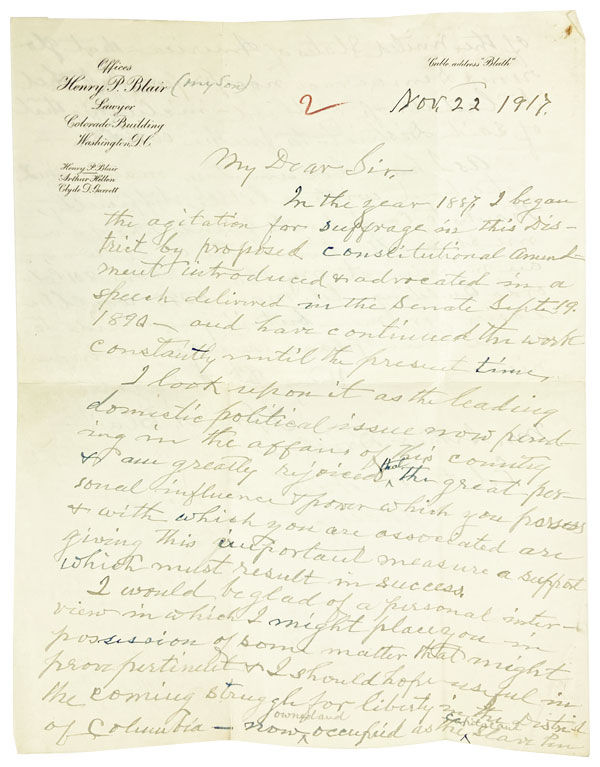 Offices
Henry P. Blair (my son)
Lawyer
Colorado Building
Washington, D.C.
Henry P. Blair
Arthur Hellen
Clyde D. Garrett
Cable address "Blath"
2
Nov. 22 1917.
My Dear Sir,
In the year 1887 I began
the agitation for suffrage in this Dis-
trict by proposed constitutional Amend-
ment introduced & advocated in a
speech delivered in the Senate Sept. 19.
1890 - and have continued the work
constantly until the present time,
I look upon it as the leading
domestic political issue now pend-
ing in the affairs of this country
& am greatly rejoiced that the great per-
sonal influence & power which you possess
& with which you are associated are
giving this important measure a support
which must result in success.
I would be glad of a personal inter-
view in which I might place you in
possession of some matter that might
prove pertinent & I should hope useful in
the coming struggle for liberty in the District
of Columbia - now owned and occupied as the slave